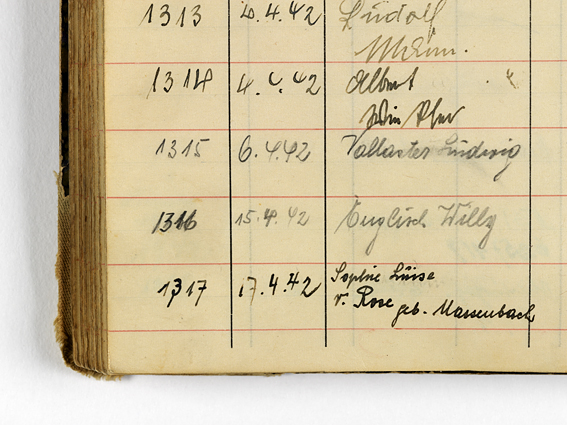 1313 4.4.42 Ludolf
1314 4.4.42 Albert
1315 6.4.42 Vallaster Ludwig
1316 15.4.42 Englisch Willy
1317 17.4.42 Sophie Luise
v. Rose geb. Massenbach